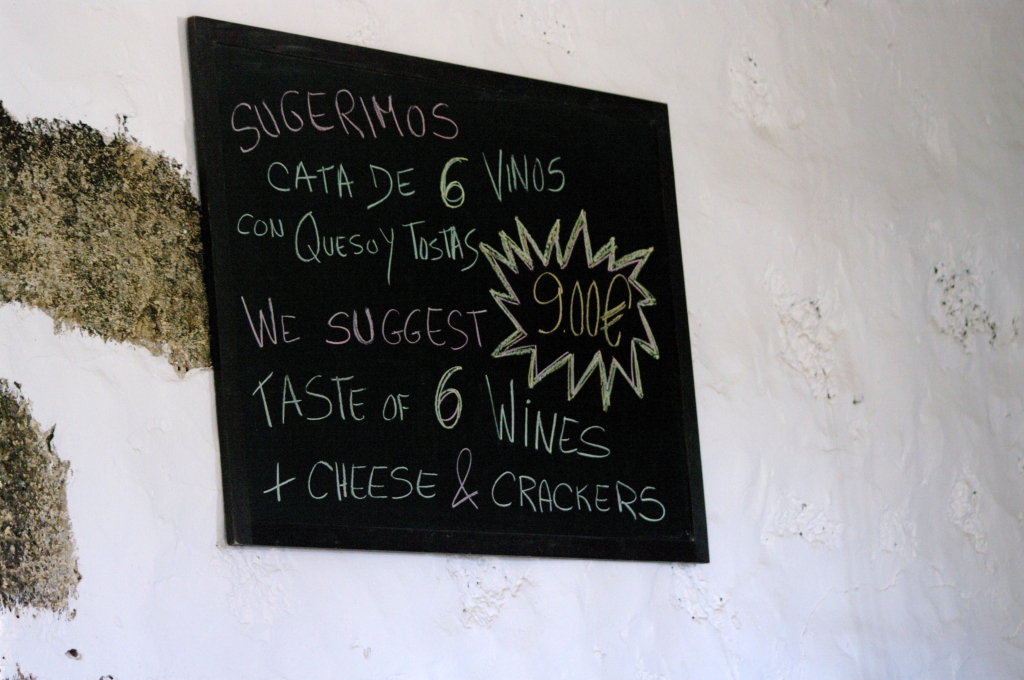 SUGERIMOS
CATA DE 6 VINOS
CON QUESO Y TOSTAS
9.00€
WE SUGGEST
TASTE OF 6 WINES
+ CHEESE & CRACKERS